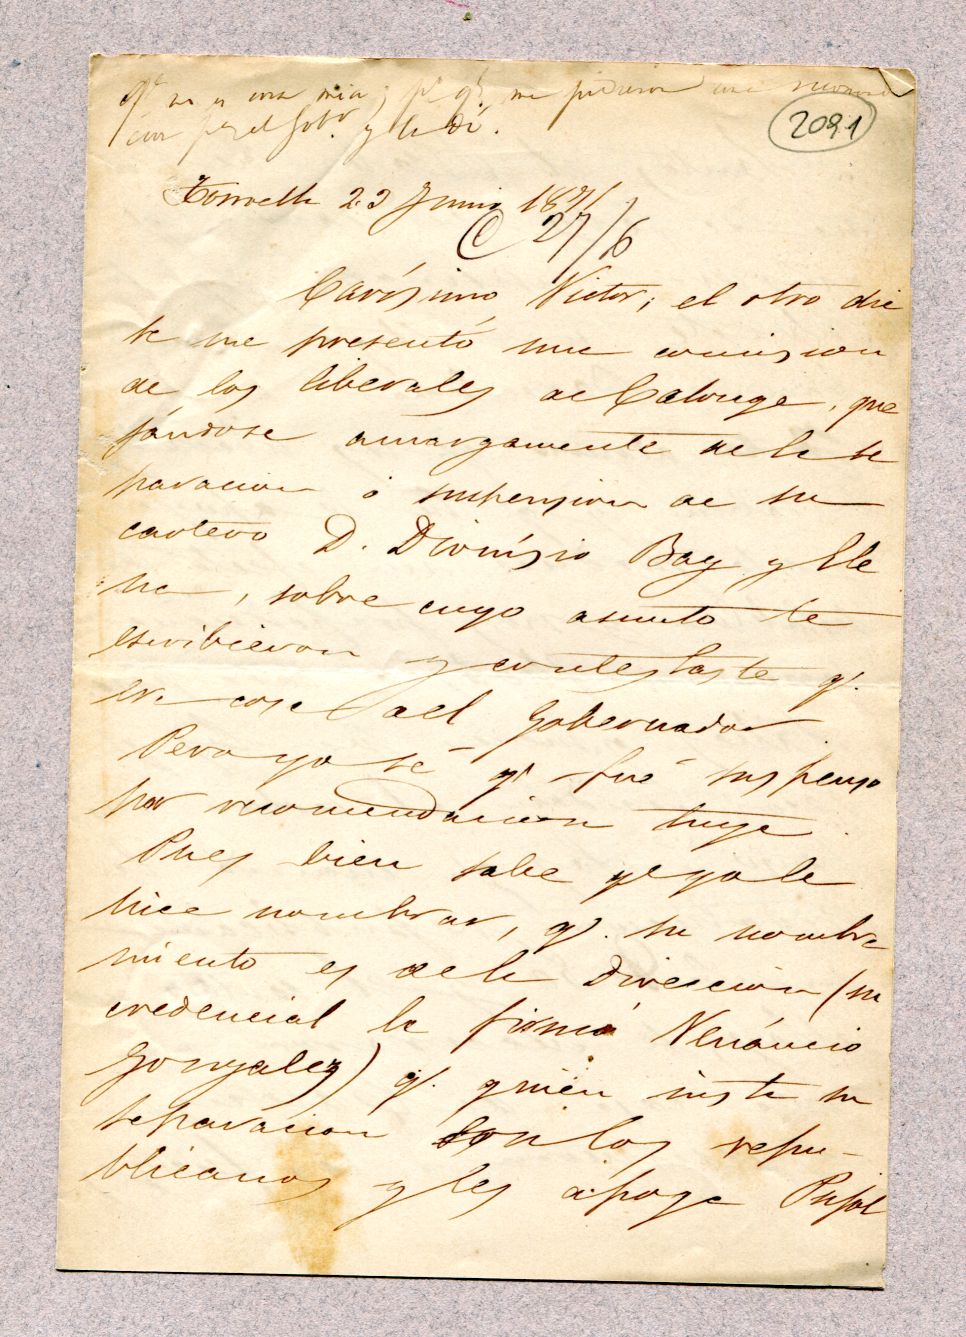 qe no es cosa mia; pr qe me pidieron una recomenda
cion pa el Gobr y la dí.
2091
Torroella 23 Junio 1871
C 27/6
Carísimo Victor; el otro dia
se me presentó una comision
de los liberales de Calonge, que
jándose amargamente de la se
paracion ó suspension de su
cartero D. Dionisio Bag y Ele
na, sobre cuyo asunto te
escribieron y contestaste q.
era cosa del Gobernador.
Pero yo sé qe fué suspenso
por recomendacion tuya.
Pues bien sabe qe yo le
hice nombrar, q. su nombra
miento es de la Direccion (su
credencial la firmó Venáncio
Gonzalez) q. quien insta su
separacion son los repu-
blicanos y les apoya Pujol